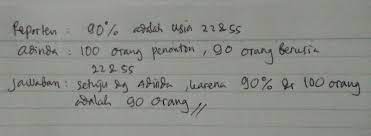 Reporter : 90% adalah usia 22 & 55
Adinda : 100 orang penonton, 90 orang berusia
22 & 55
Jawaban : setuju dg Adinda, karena 90% dr 100 orang
adalah 90 orang //